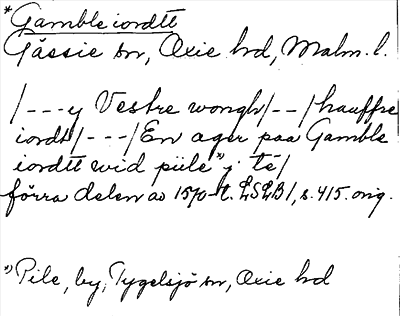 *Gambleiordtt
Gässie sn, Oxie hd, Malm. l.
/---y Vestre wongh/--/hauffre
iordt/---/En ager paa Gamble
iordtt wid piile*) j té/
förra delen av 1570-t. LSLB 1, s. 415. orig.
*) Pile, by, Tygelsjö sn, Oxie hd